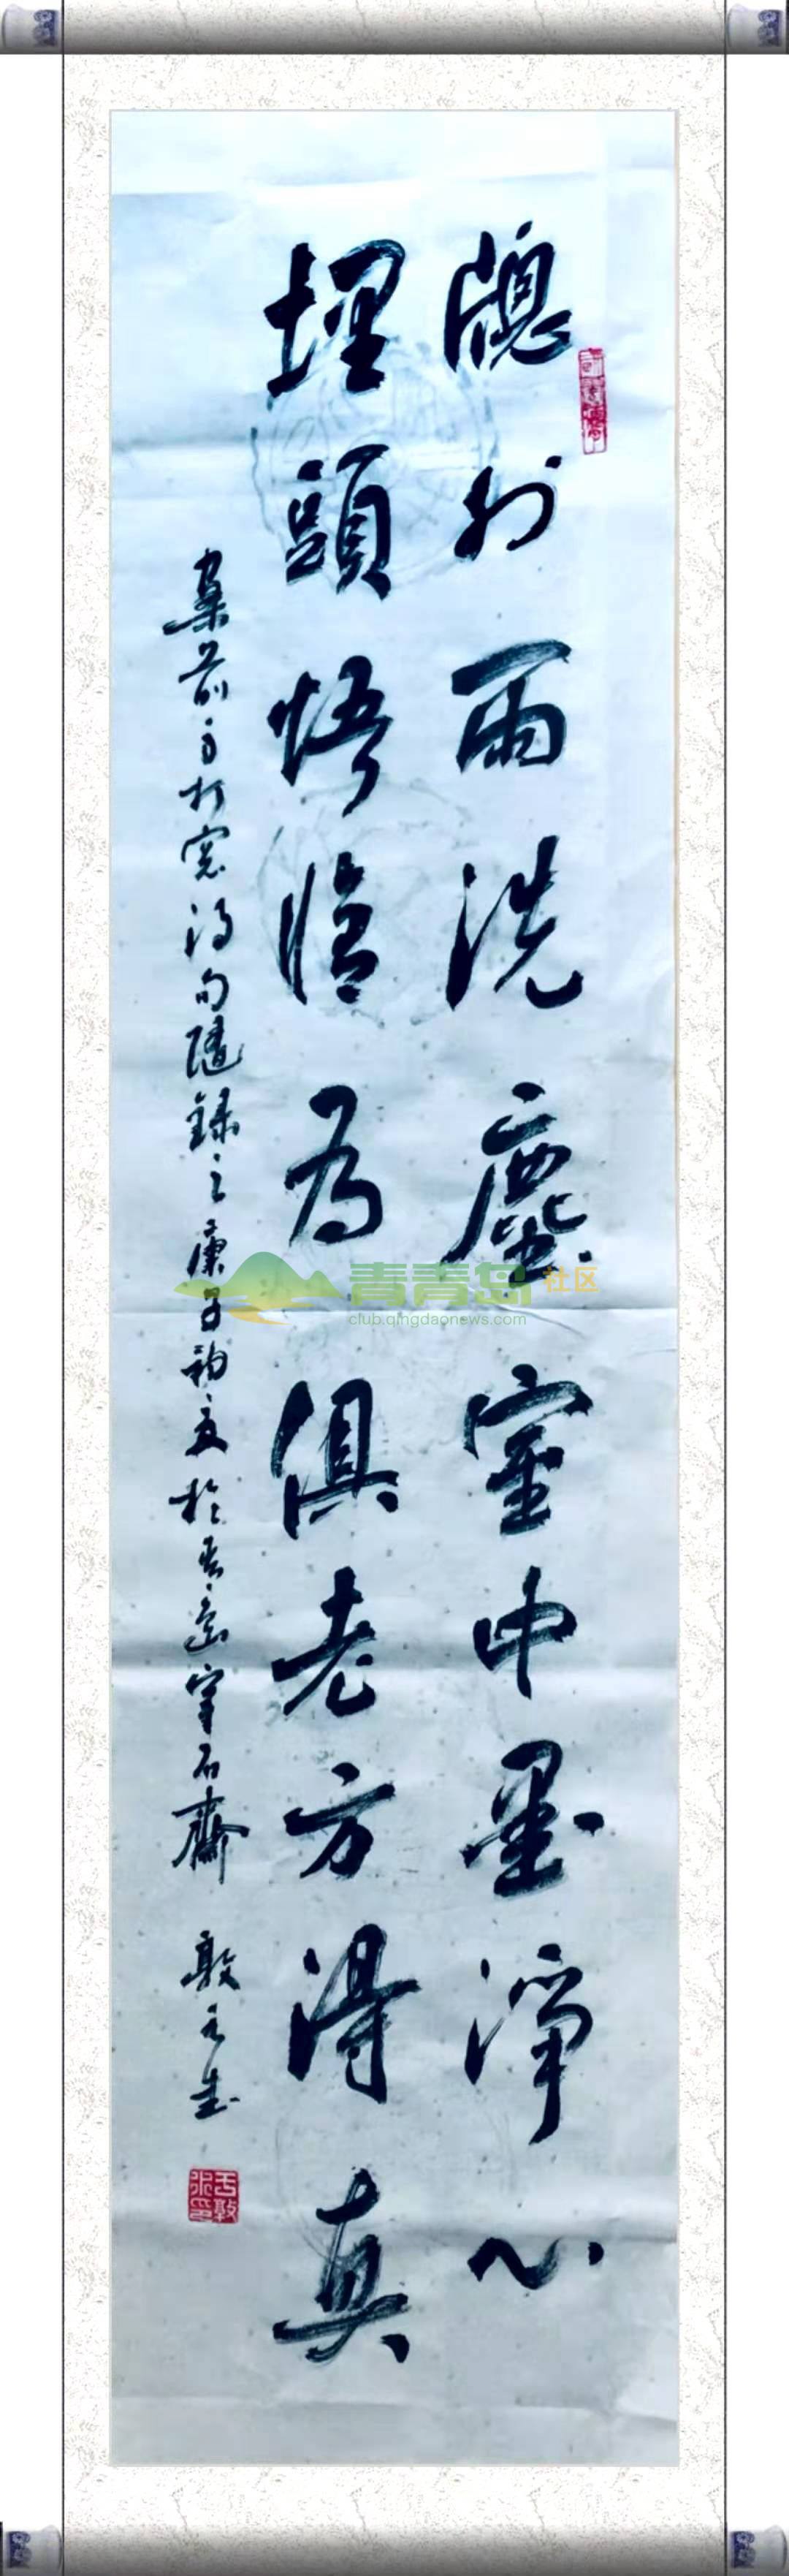 窗外雨洗塵室中墨淨心
埋頭悟臨為俱老方得真
案前雨打窗得句隨錄之庚子初夏於青島寧石齋
敦之書
青青岛社区
club.qingdaonews.com